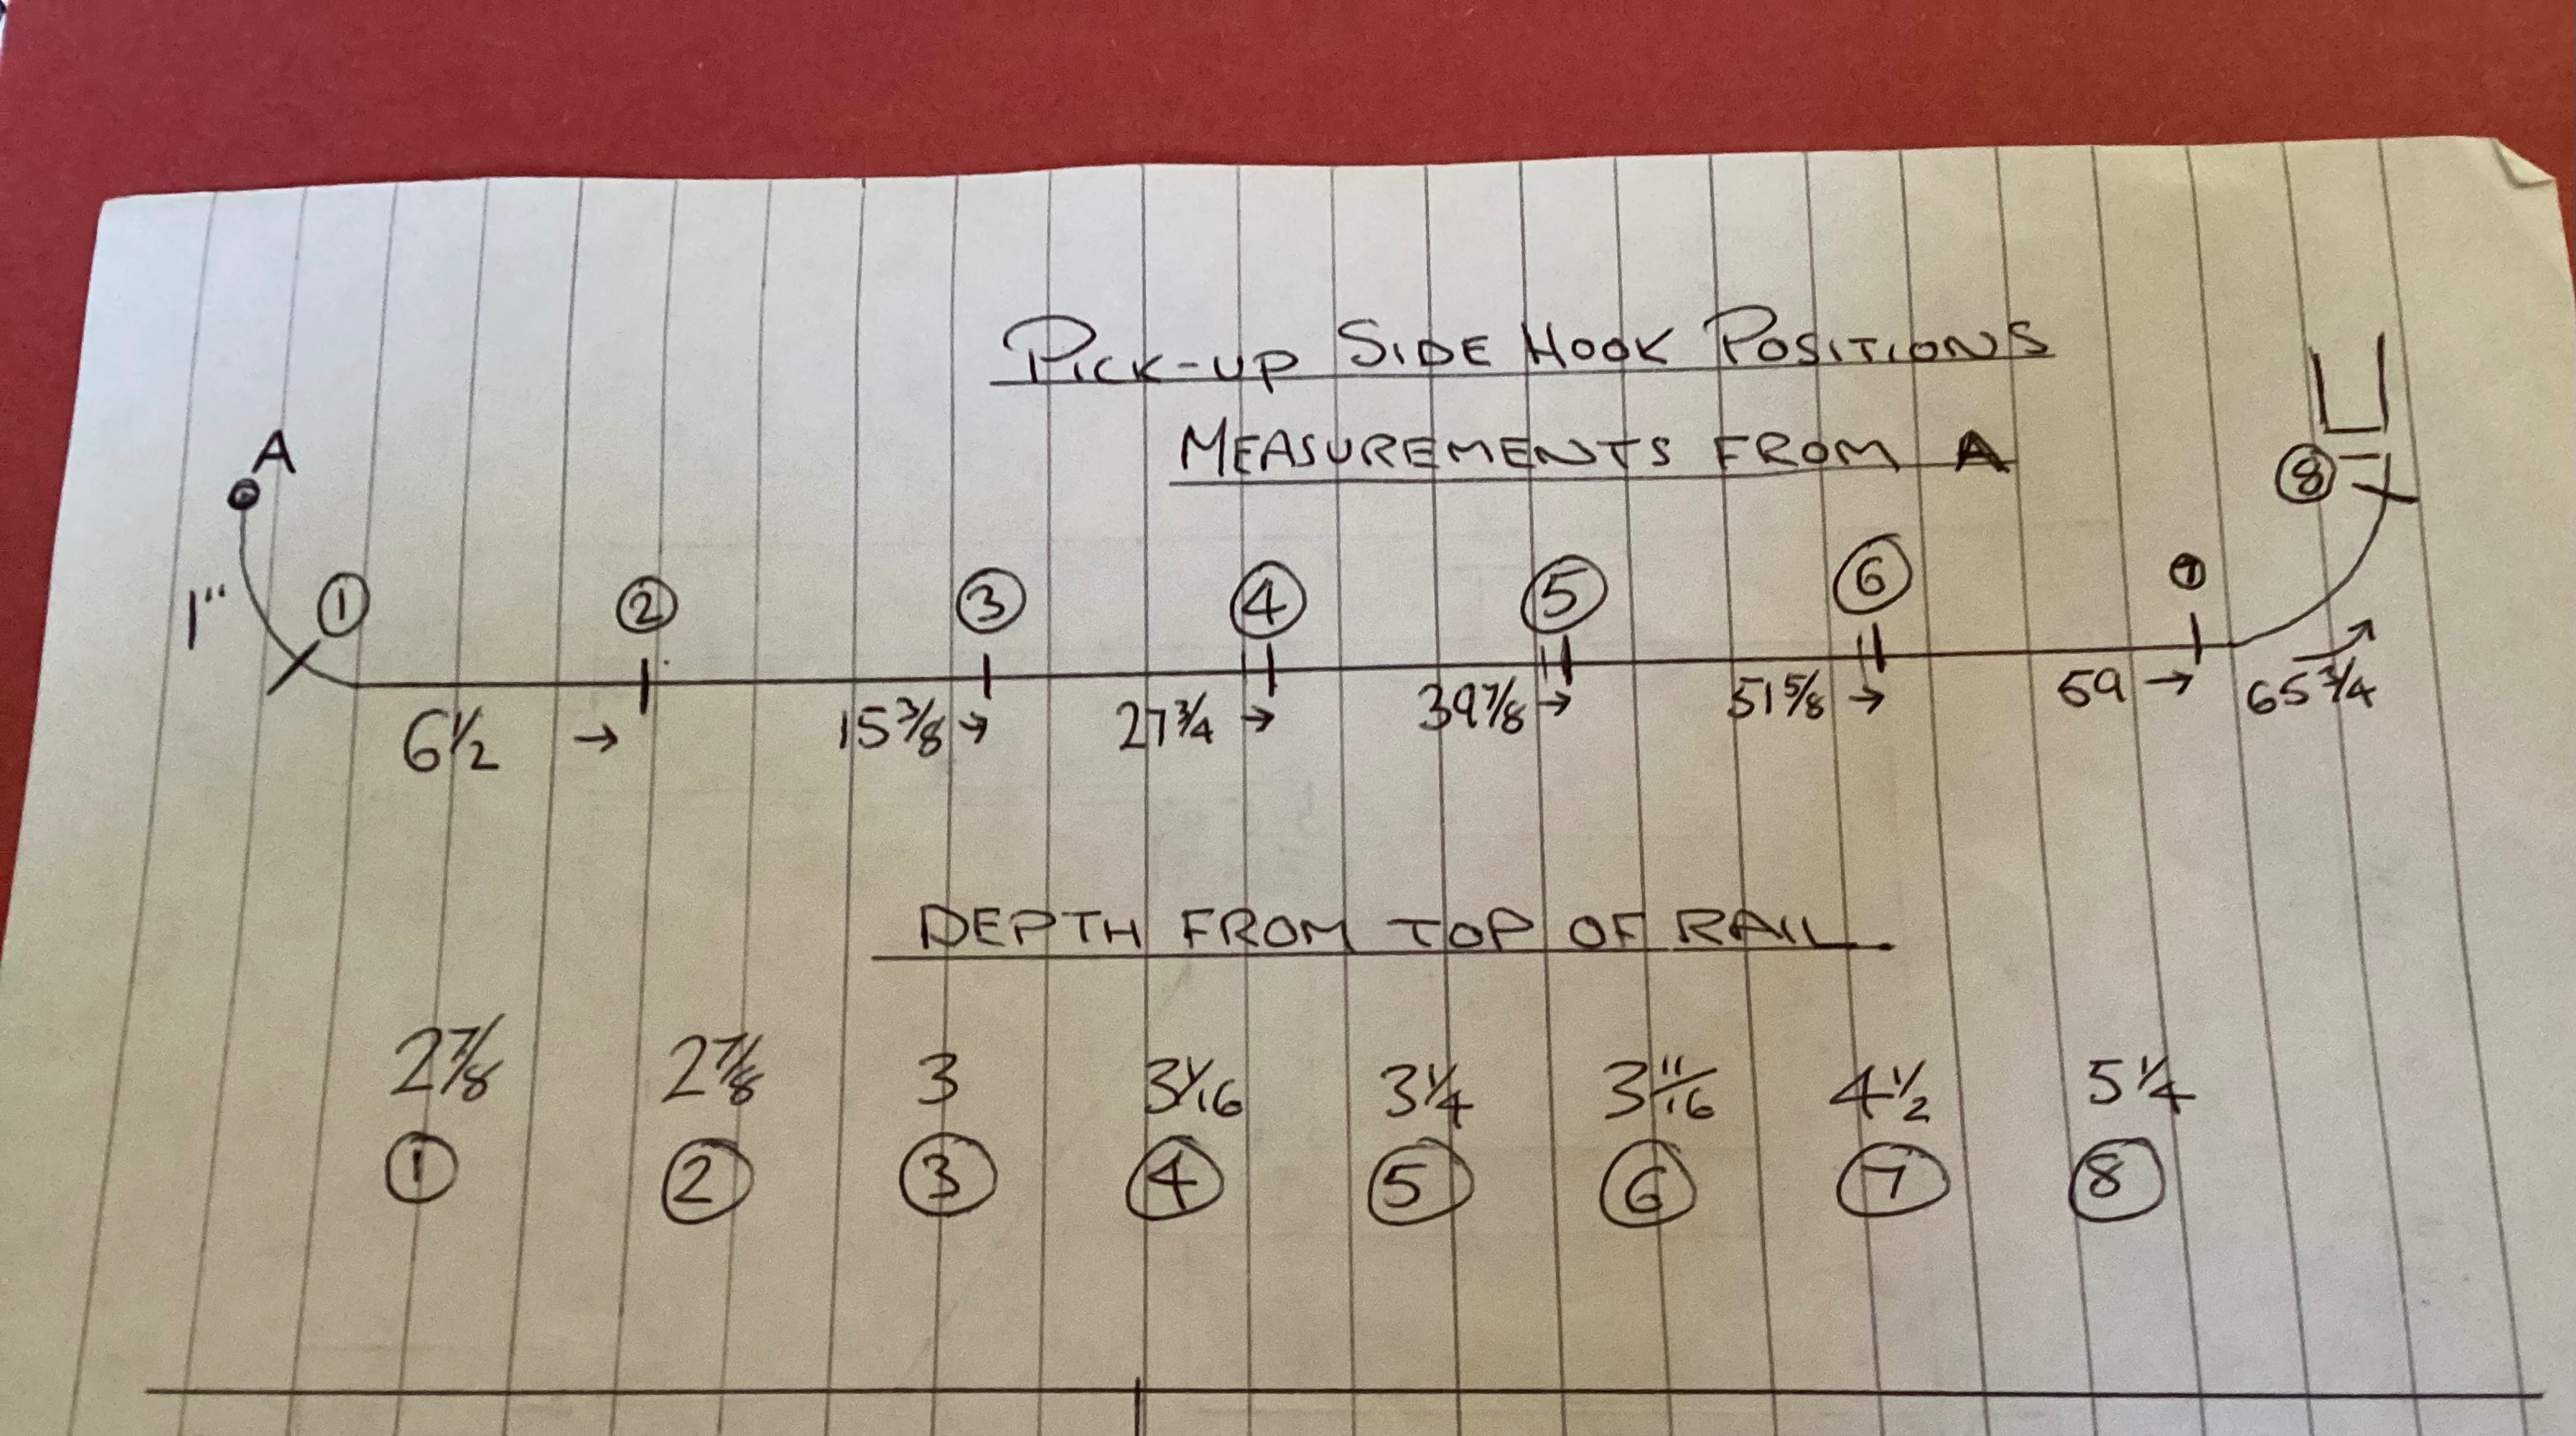 PICK-UP SIDE HOOK POSITIONS
MEASUREMENTS FROM A
A
8
1" 1 2 3 4 5 6 7
6 1/2 → 15 3/8 → 27 3/4 → 39 7/8 → 51 5/8 → 59 → 65 3/4
DEPTH FROM TOP OF RAIL
2 7/8 2 7/8 3 3 1/16 3 1/4 3 11/16 4 1/2 5 1/4
1 2 3 4 5 6 7 8